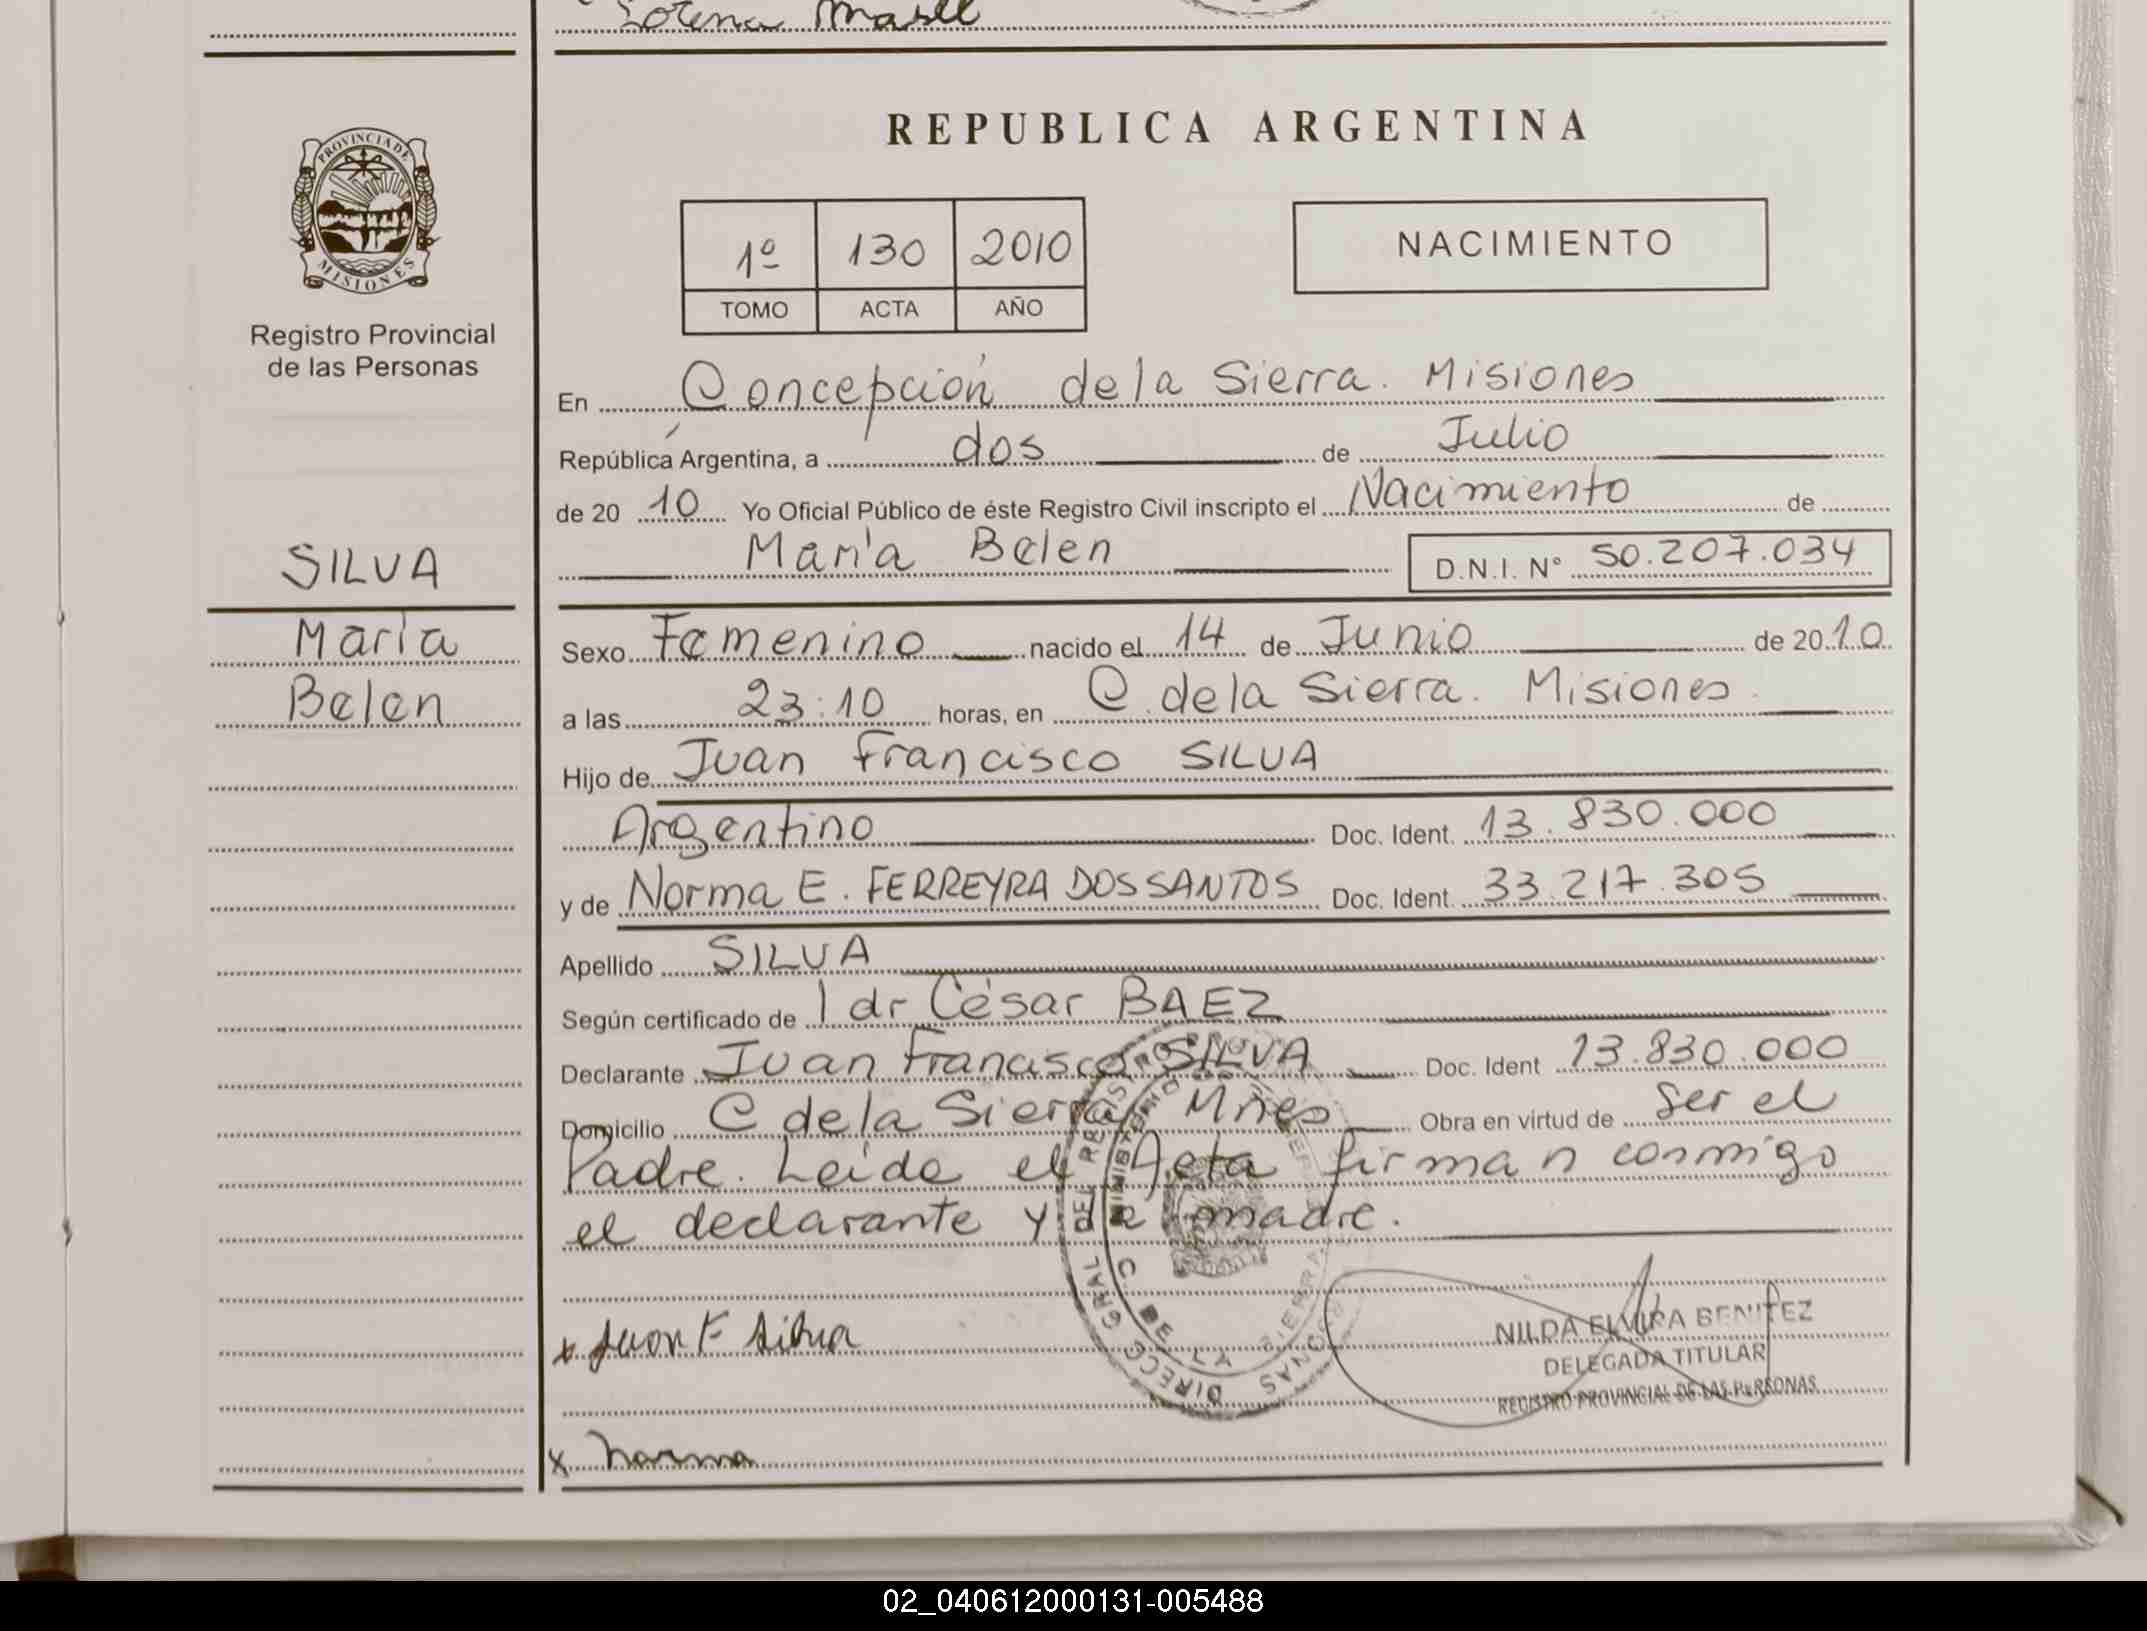 Lorena Mabel
REPUBLICA ARGENTINA
PROVINCIA DE MISIONES
Registro Provincial
de las Personas
1º 130 2010
TOMO ACTA AÑO
NACIMIENTO
En Concepción de la Sierra. Misiones
República Argentina, a dos de Julio
de 20 10 Yo Oficial Público de éste Registro Civil inscripto el Nacimiento de
María Belen D.N.I. Nº 50.207.034
SILVA
María
Belen
Sexo Femenino nacido el 14 de Junio de 2010
a las 23:10 horas, en C. de la Sierra. Misiones
Hijo de Juan Francisco SILVA
Argentino Doc. Ident. 13.830.000
y de Norma E. FERREYRA DOS SANTOS Doc. Ident. 33.217.305
Apellido SILVA
Según certificado de l dr César BAEZ
Declarante Juan Francisco SILVA Doc. Ident 13.830.000
Domicilio C de la Sierra Mnes Obra en virtud de Ser el
Padre. Leída el Acta firman conmigo
el declarante y la madre.
x Juan F Silva
NILDA ELVIRA BENITEZ
DELEGADA TITULAR
REGISTRO PROVINCIAL DE LAS PERSONAS
x Norma
02_040612000131-005488